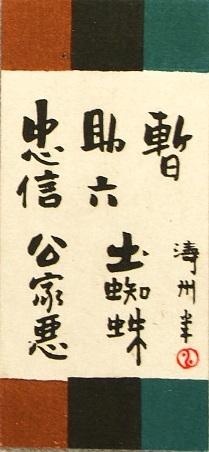 暫
助六
土蜘蛛
忠信
公家悪
濤州